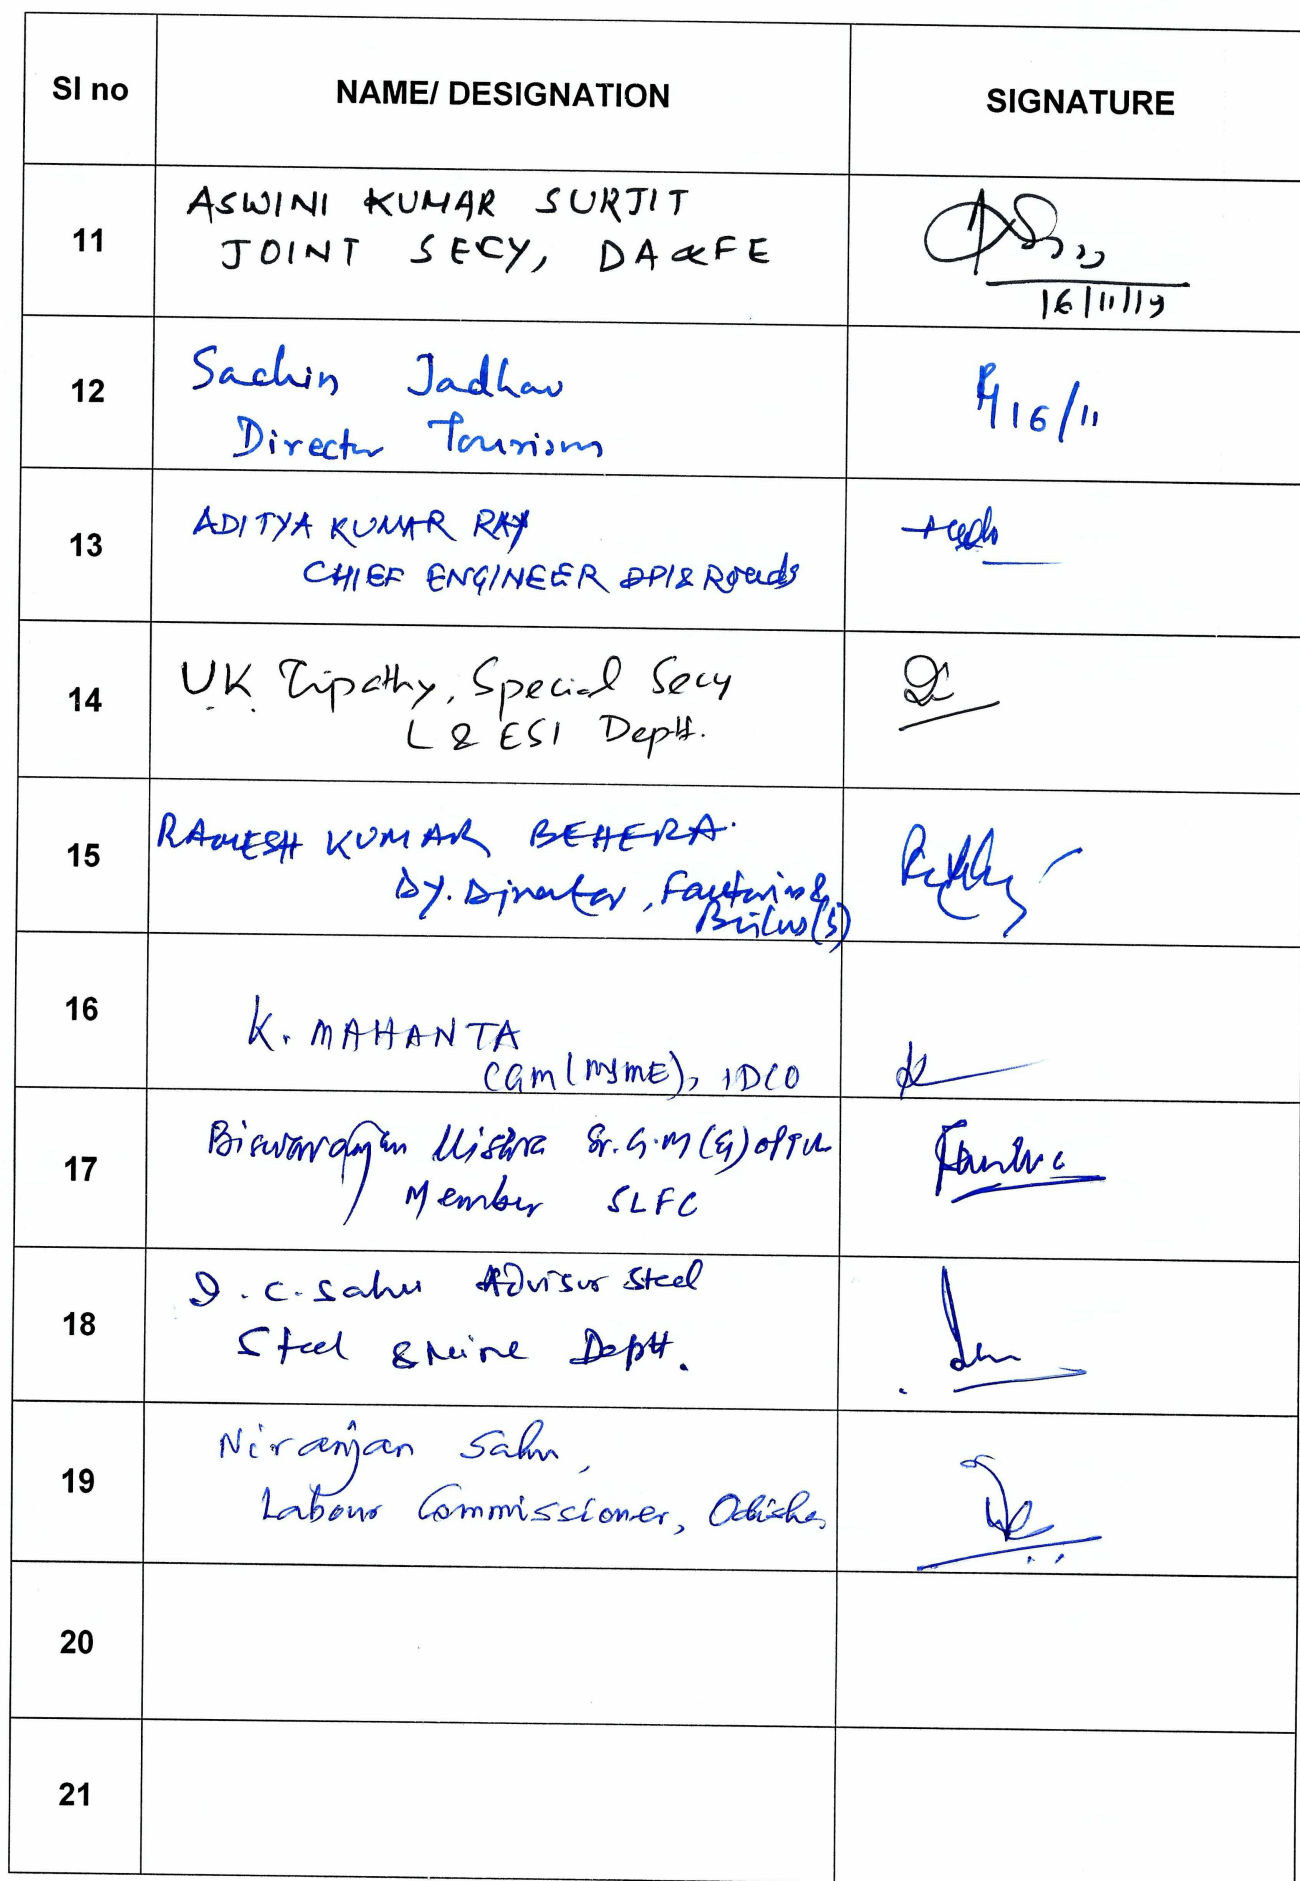 Sl no NAME/ DESIGNATION SIGNATURE
11 ASWINI KUMAR SURJIT
JOINT SECY, DA&FE
16/11/19
12 Sachin Jadhav
Director Tourism
16/11
13 ADITYA KUMAR RAY
CHIEF ENGINEER DPI & Roads
14 UK Tripathy, Special Secy
L & ESI Deptt.
15 RAMESH KUMAR BEHERA.
Dy. Director, Factories &
Boilers (S)
16 K. MAHANTA
CGM (MSME), IDCO
17 Biswaranjan Mishra Sr. G.M (E) OPTCL
Member SLFC
18 D. C. Sahu Advisor Steel
Steel & Mine Deptt.
19 Niranjan Sahu,
Labour Commissioner, Odisha
20
21